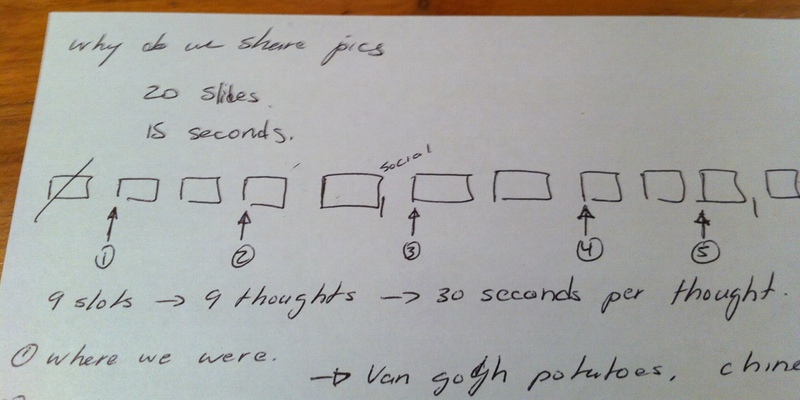 why do we share pics
20 slides.
15 seconds.
social
① ② ③ ④ ⑤
9 slots → 9 thoughts → 30 seconds per thought.
① where we were.
→ Van gogh potatoes, chine